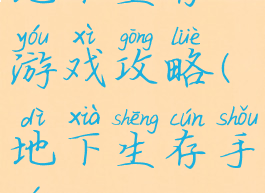 yóu xì gōng lüè
游戏攻略(
dì xià shēng cún shǒu
地下生存手